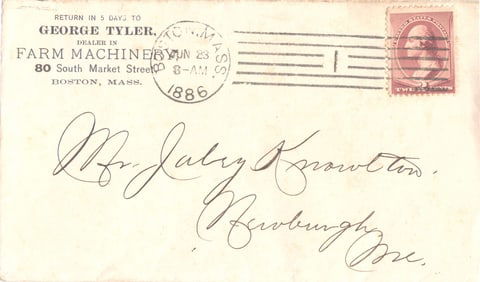 RETURN IN 5 DAYS TO
GEORGE TYLER,
DEALER IN
FARM MACHINERY
80 South Market Street
BOSTON, MASS.
BOSTON, MASS.
JUN 23
8-AM
1886
1
Mr. Jabez Knowlton.
Newburgh,
Me.